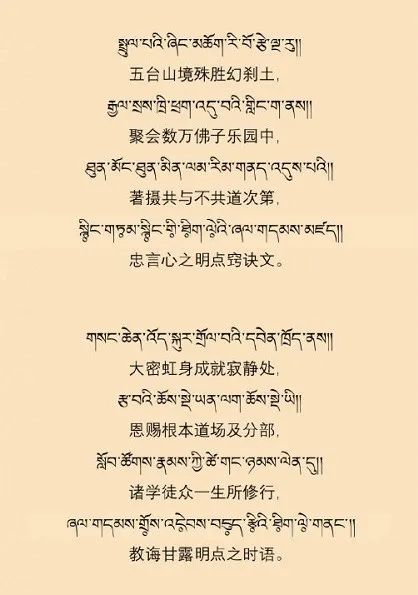 སྤྲུལ་པའི་ཞིང་མཆོག་རི་བོ་རྩེ་ལྔ་རུ།།
五台山境殊胜幻刹土，
རྒྱལ་སྲས་ཁྲི་ཕྲག་འདུ་བའི་གླིང་ག་ནས།།
聚会数万佛子乐园中，
ཐུན་མོང་ཐུན་མིན་ལམ་རིམ་གནད་འདུས་པའི།།
著摄共与不共道次第，
སྙིང་གཏམ་སྙིང་གི་ཐིག་ལེའི་ཞལ་གདམས་མཛད།།
忠言心之明点窍诀文。
གསང་ཆེན་འོད་སྐུར་གྲོལ་བའི་དབེན་ཁྲོད་ནས།།
大密虹身成就寂静处，
རྩ་བའི་ཆོས་སྡེ་ཡན་ལག་ཆོས་སྡེ་ཡི།།
恩赐根本道场及分部，
སློབ་ཚོགས་རྣམས་ཀྱི་ཚེ་གང་ཉམས་ལེན་དུ།།
诸学徒众一生所修行，
ཞལ་གདམས་གྲོས་འདེབས་བདུད་རྩིའི་ཐིག་ལེ་གནང་།།
教诲甘露明点之时语。